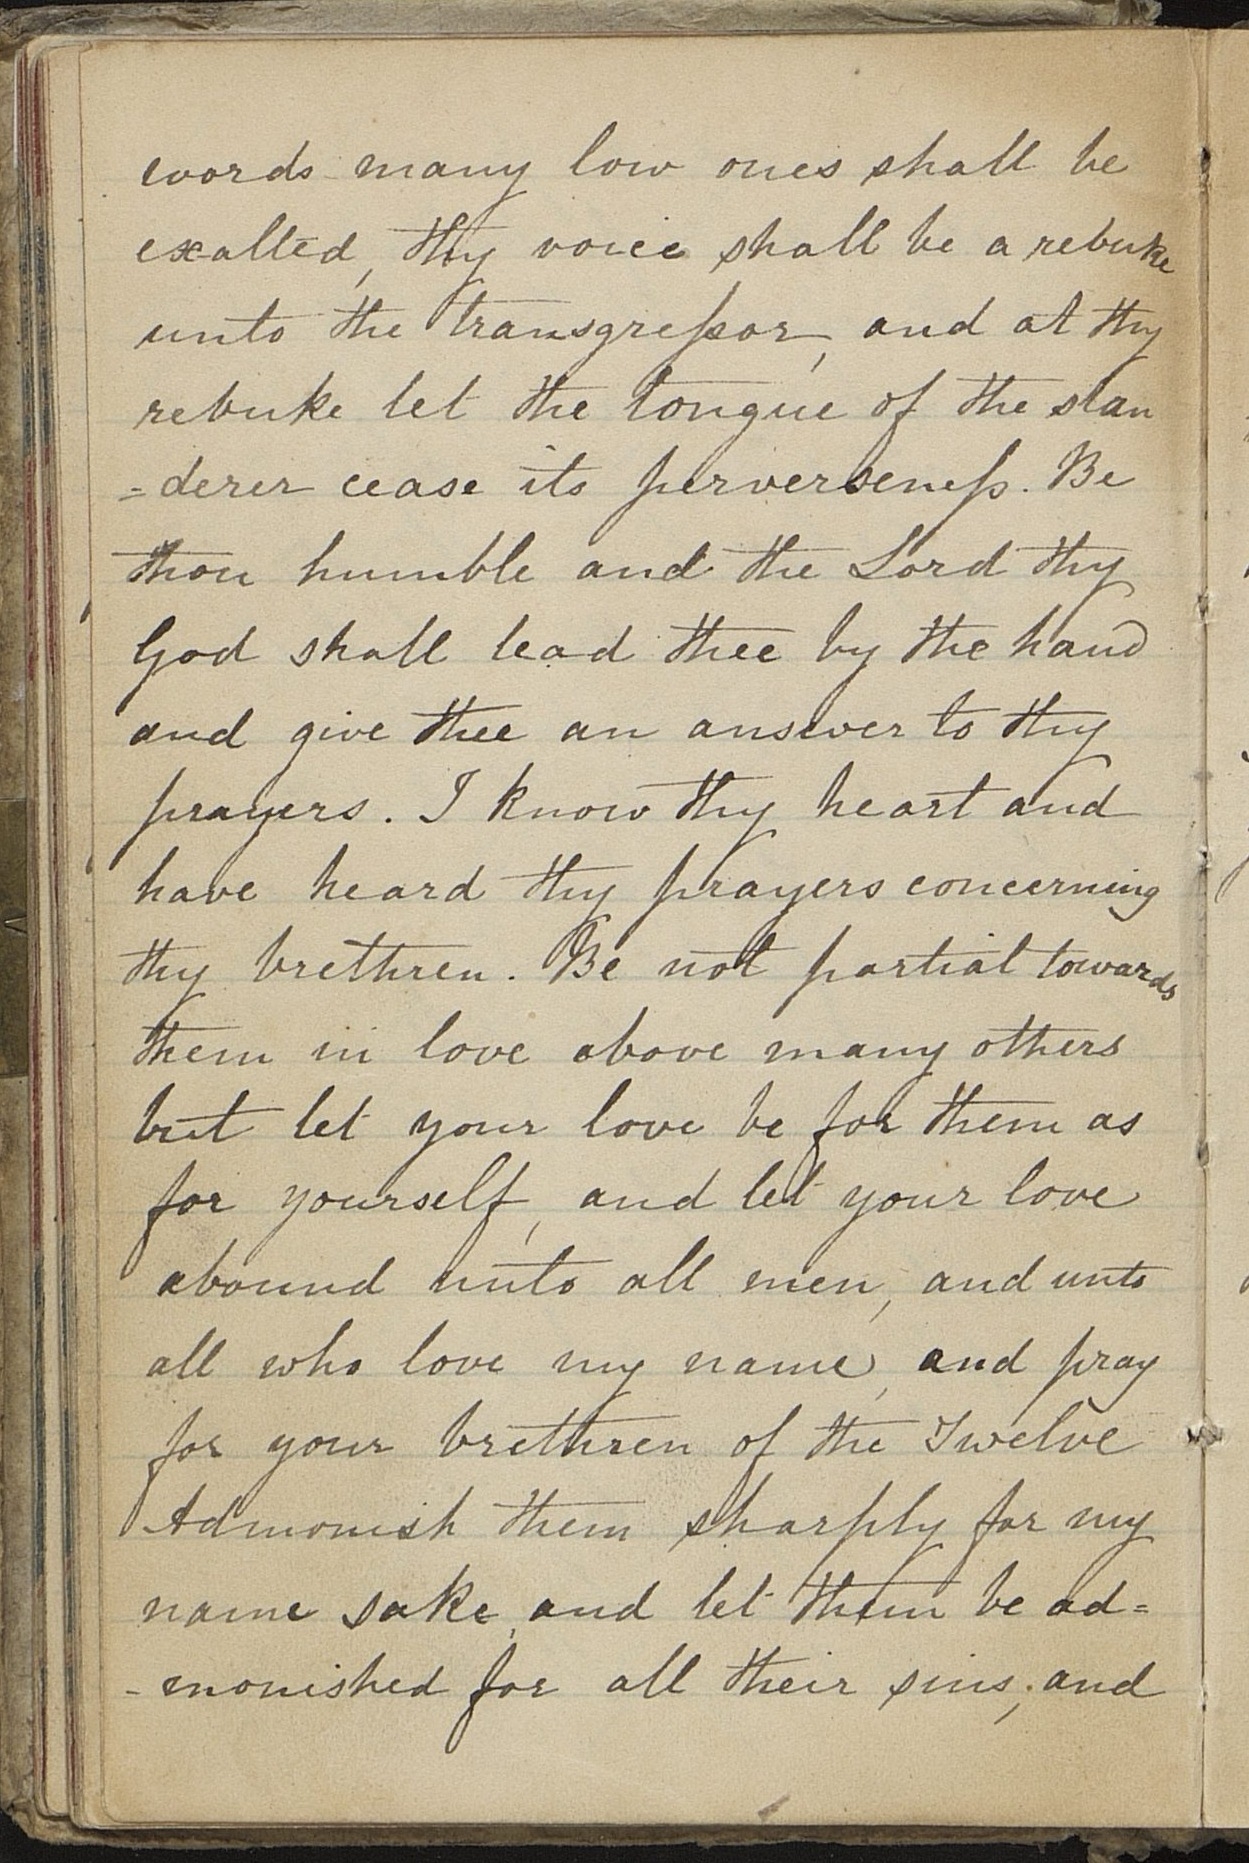 words many low ones shall be
exalted, thy voice shall be a rebuke
unto the transgreſsor, and at thy
rebuke let the tongue of the slan
=derer cease its perverseneſs. Be
thou humble and the Lord thy
God shall lead thee by the hand
and give thee an answer to thy
prayers. I know thy heart and
have heard thy prayers concerning
thy brethren. Be not partial towards
them in love above many others
but let your love be for them as
for yourself, and let your love
abound unto all men, and unto
all who love my name, and pray
for your brethren of the Twelve
Admonish them sharply for my
name sake, and let them be ad=
-monished for all their sins, and